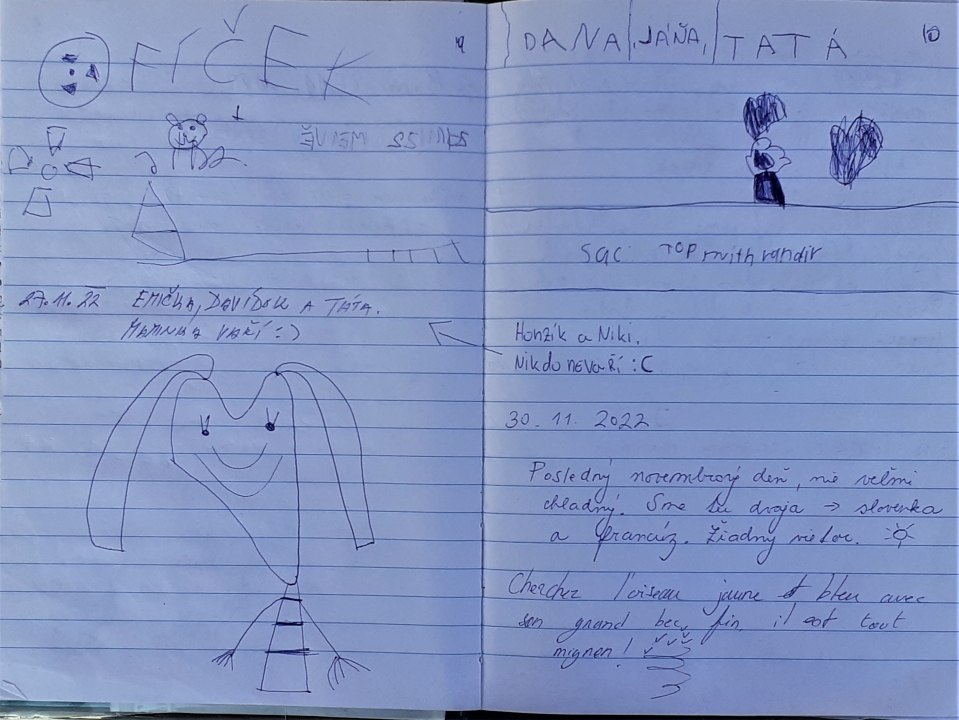 FÍČEK
9
27.11.22 EMIČKA, DAVÍDEK A TÁTA.
MAMINKA VAŘÍ :)
10
DANA, JÁŇA, TATÁ
SQC TOP mithrandir
Honzík a Niki.
Nikdo nevaří :C
30. 11. 2022
Posledný novembrový deň, nie veľmi
chladný. Sme tu dvaja → slovenka
a francúz. Žiadny vietor.
Cherchez l'oiseau jaune et bleu avec
son grand bec fin, il est tout
mignon!